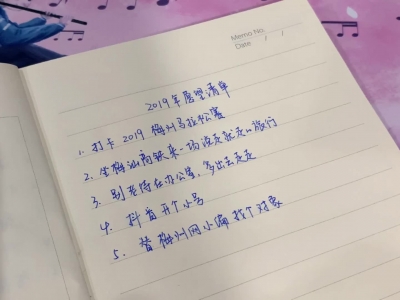 Memo No.
Date / /
2019年愿望清单
1. 打卡 2019 梅州马拉松赛
2. 坐梅汕高铁来一场说走就走的旅行
3. 别老待在办公室，多出去走走
4. 抖音开个小号
5. 替梅州网小编找个对象